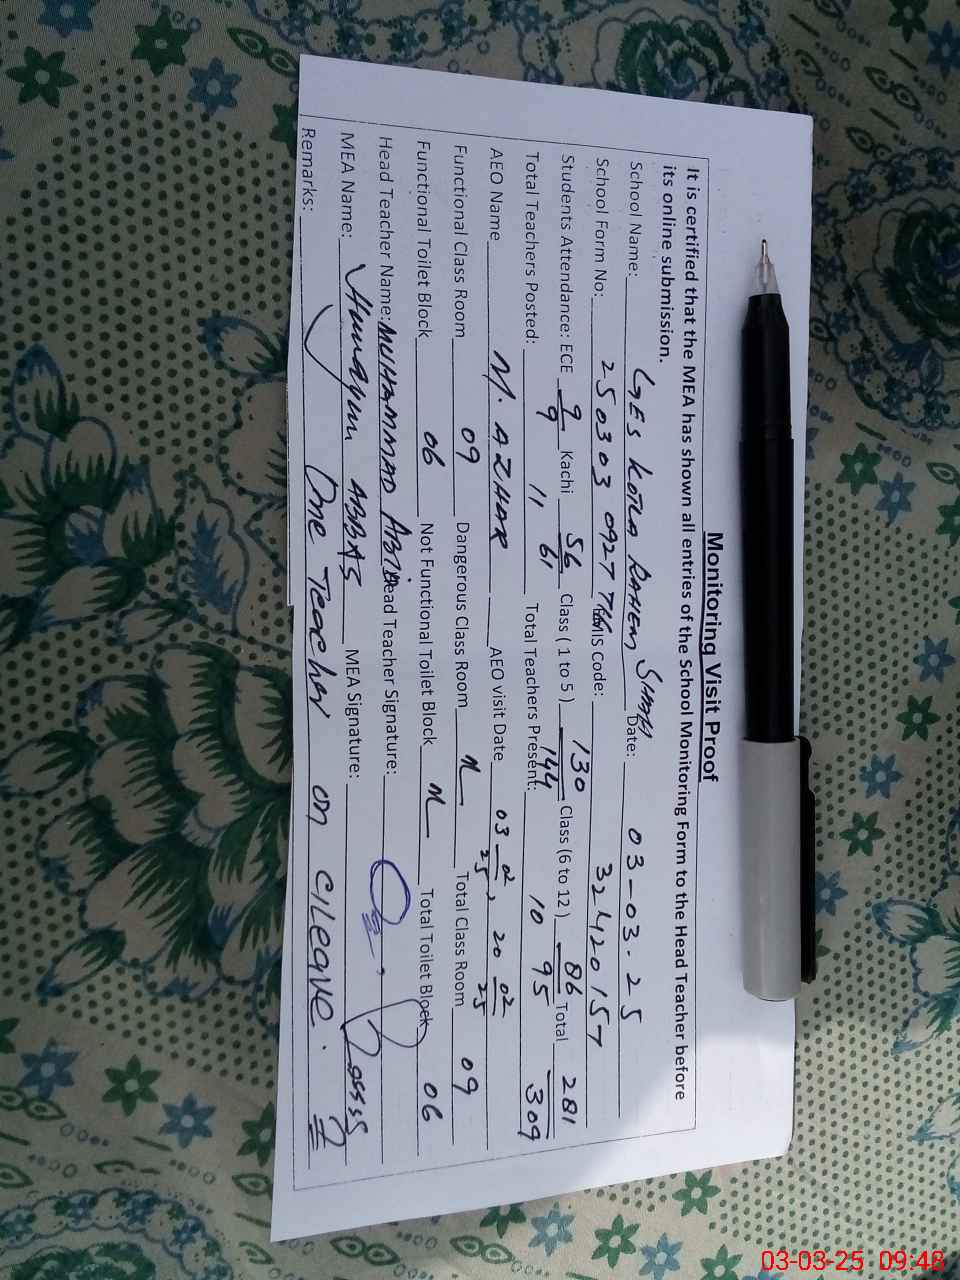 Monitoring Visit Proof
It is certified that the MEA has shown all entries of the School Monitoring Form to the Head Teacher before
its online submission.
School Name: GES KOTLA RAHEM SHAH Date: 03-03-25
School Form No: 250303 0927 EMIS Code: 32420157
Students Attendance: ECE 9/9 Kachi 56/61 Class ( 1 to 5 ) 130/144 Class (6 to 12 ) 86/95 Total 281/309
Total Teachers Posted: 11 Total Teachers Present: 10
AEO Name M. AZHAR AEO visit Date 03 02/25, 20 02/25
Functional Class Room 09 Dangerous Class Room N Total Class Room 09
Functional Toilet Block 06 Not Functional Toilet Block N Total Toilet Block 06
Head Teacher Name: MUHAMMAD Head Teacher Signature:
MEA Name: Humayun ABBAS MEA Signature:
Remarks: One Teacher on C/Leave.
03-03-25 09:48